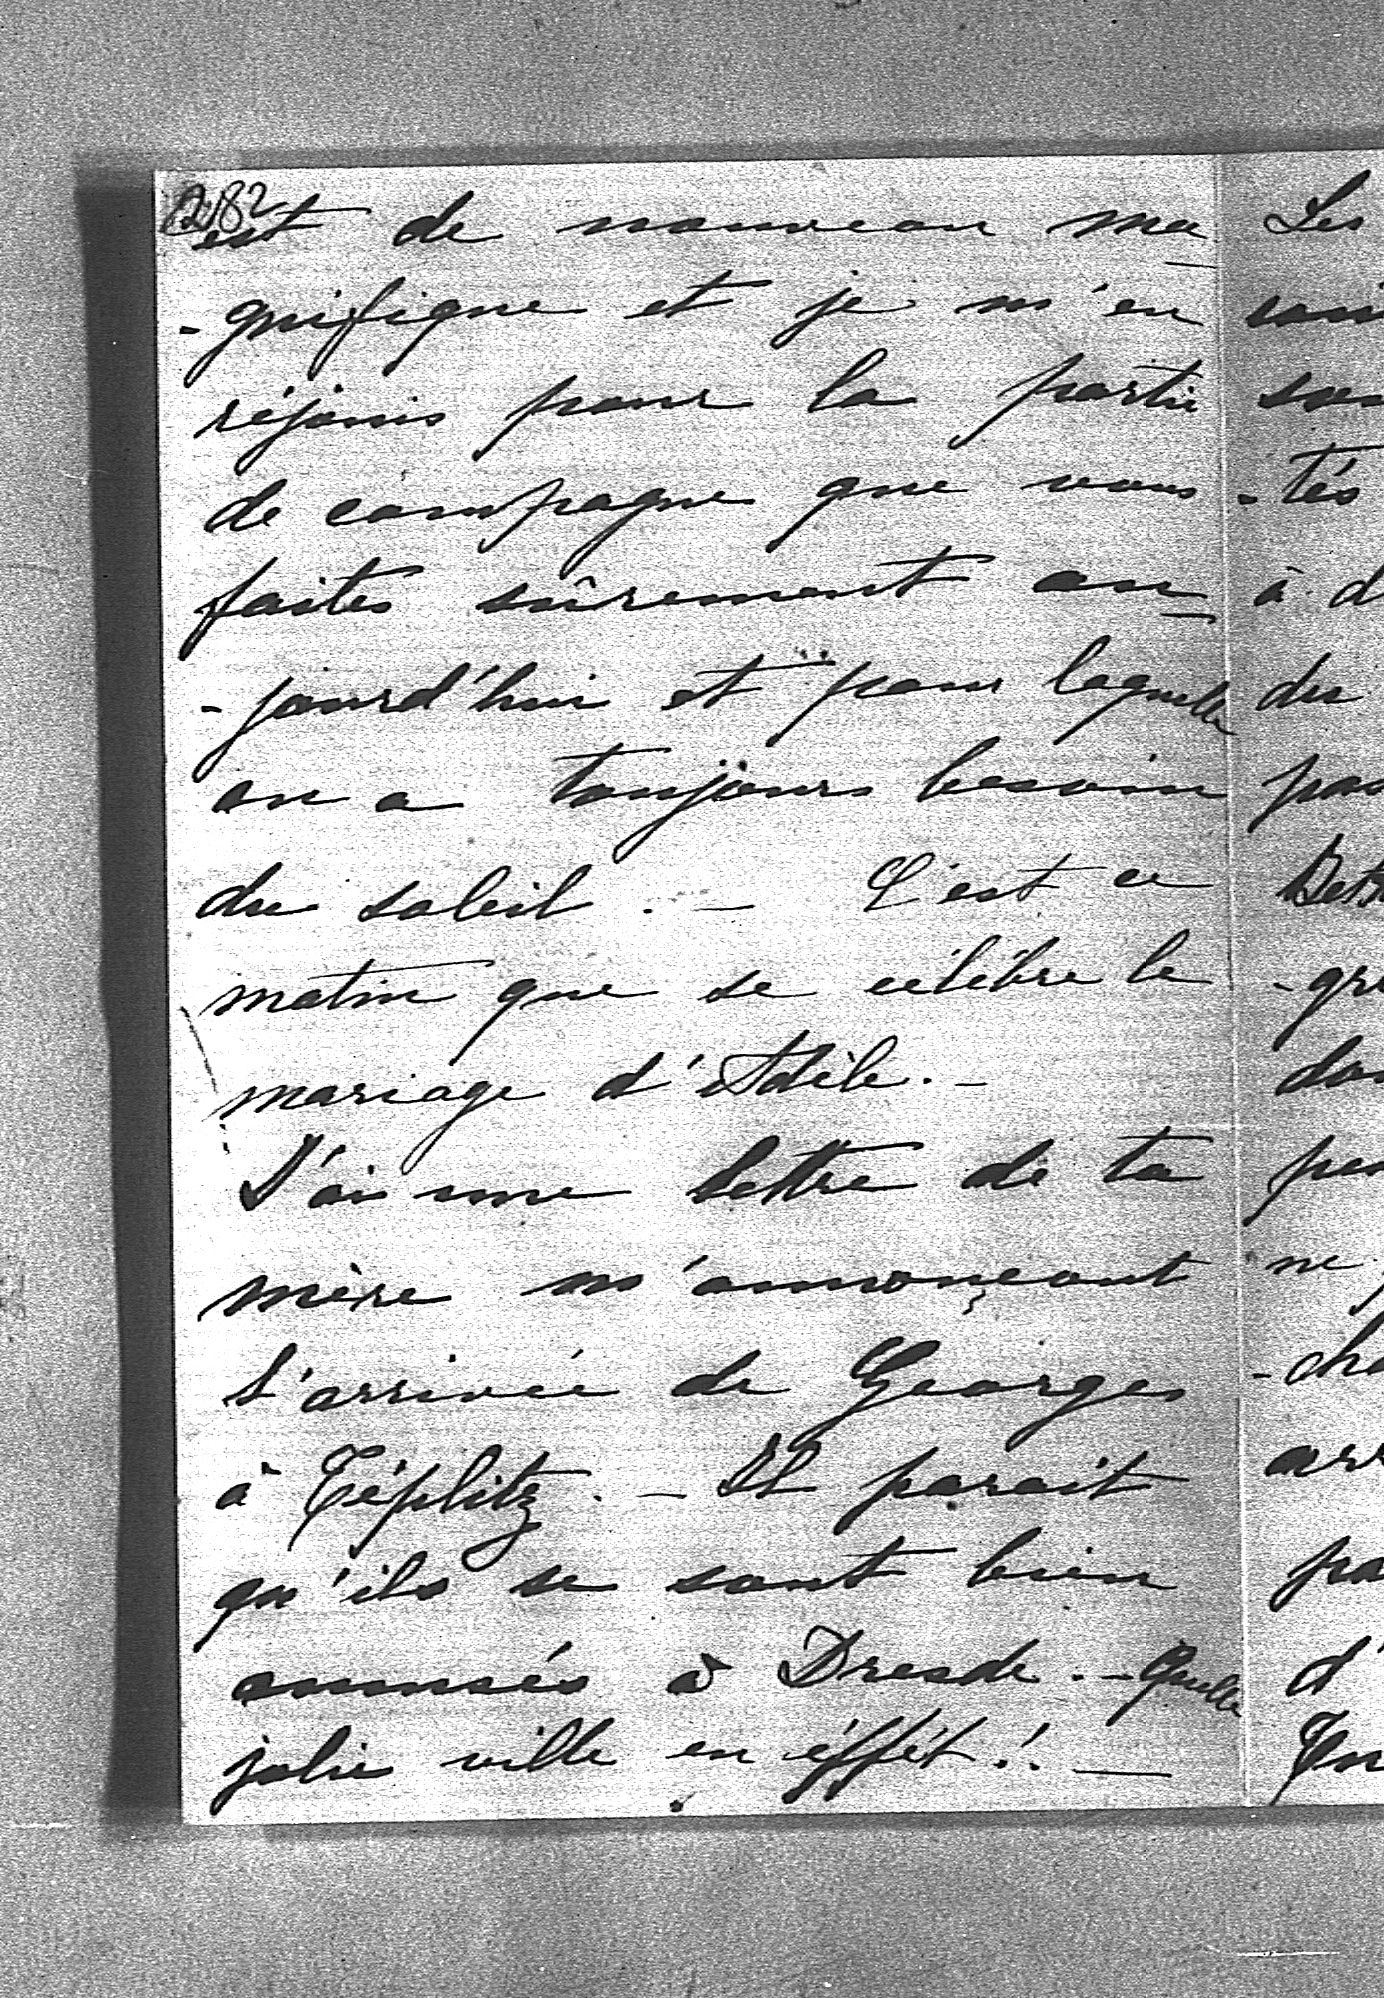 2182
est de nouveau ma
-gnifique et je m'en
réjouis pour la partie
de campagne que vous
faites sûrement au
-jourd'hui et pour laquelle
on a toujours besoin
du soleil. — C'est ce
matin que se célèbre le
mariage d'Adèle. —
J'ai une lettre de ta
mère m'annonçant
l'arrivée de Georges
à Téplitz. — Il parait
qu'ils se sont bien
amusés à Dresde. — Quelle
jolie ville en éffét! —
Les
-tés
à d
du
ne
d'